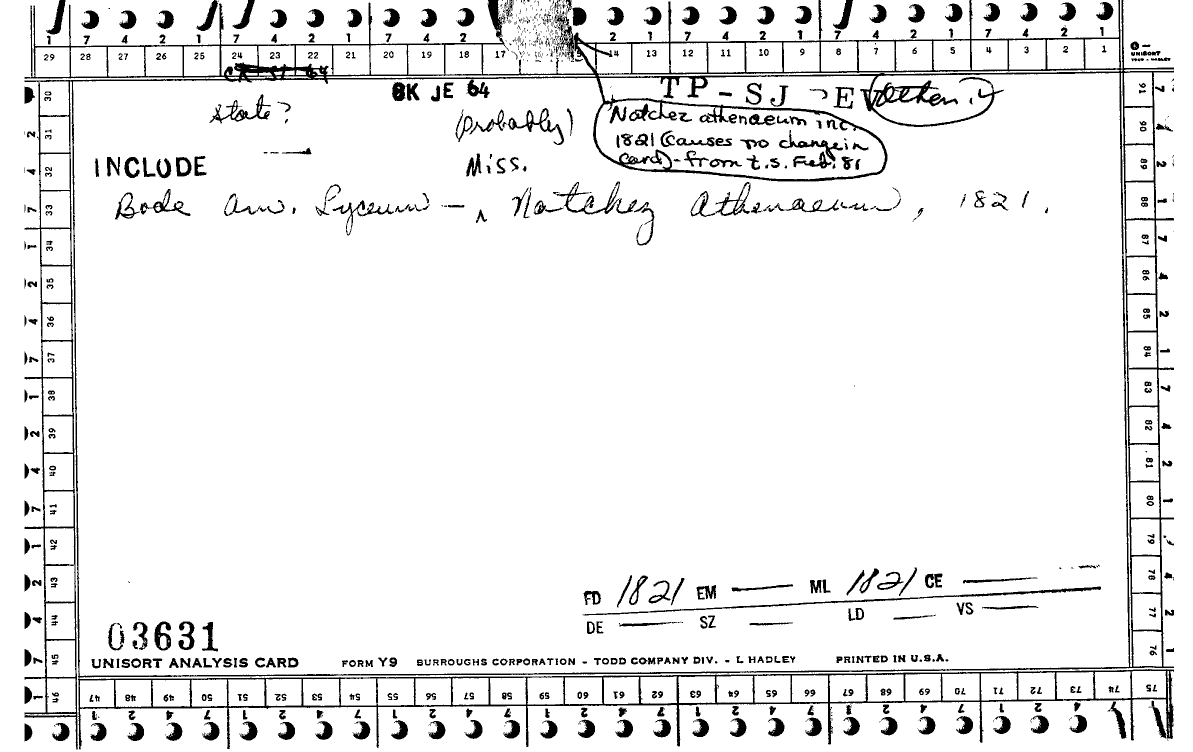 1 7 4 2 1 7 4 2 1 7 4 2 2 1 7 4 2 1 7 4 2 1 7 4 2 1
29 28 27 26 25 24 23 22 21 20 19 18 17 15 14 13 12 11 10 9 8 7 6 5 4 3 2 1
UNISORT
TODD - HADLEY
BK JE 64
TP - SJ
State?
(probably)
Natchez athenaeum inc.
1821 (Causes no change in
card) - from t.s. Feb. 81
INCLUDE
Miss.
Bode Am. Lyceum — ^ Natchez Athenaeum, 1821.
30 31 32 33 34 35 36 37 38 39 40 41 42 43 44 45 46
91 90 89 88 87 86 85 84 83 82 81 80 79 78 77 76 75
FD 1821 EM — ML 1821 CE —
DE — SZ — LD — VS —
03631
UNISORT ANALYSIS CARD FORM Y9 BURROUGHS CORPORATION - TODD COMPANY DIV. - L HADLEY PRINTED IN U.S.A.
47 48 49 50 51 52 53 54 55 56 57 58 59 60 61 62 63 64 65 66 67 68 69 70 71 72 73 74
1 2 4 7 1 2 4 7 1 2 4 7 1 2 4 7 1 2 4 7 1 2 4 7 1 2 4 7